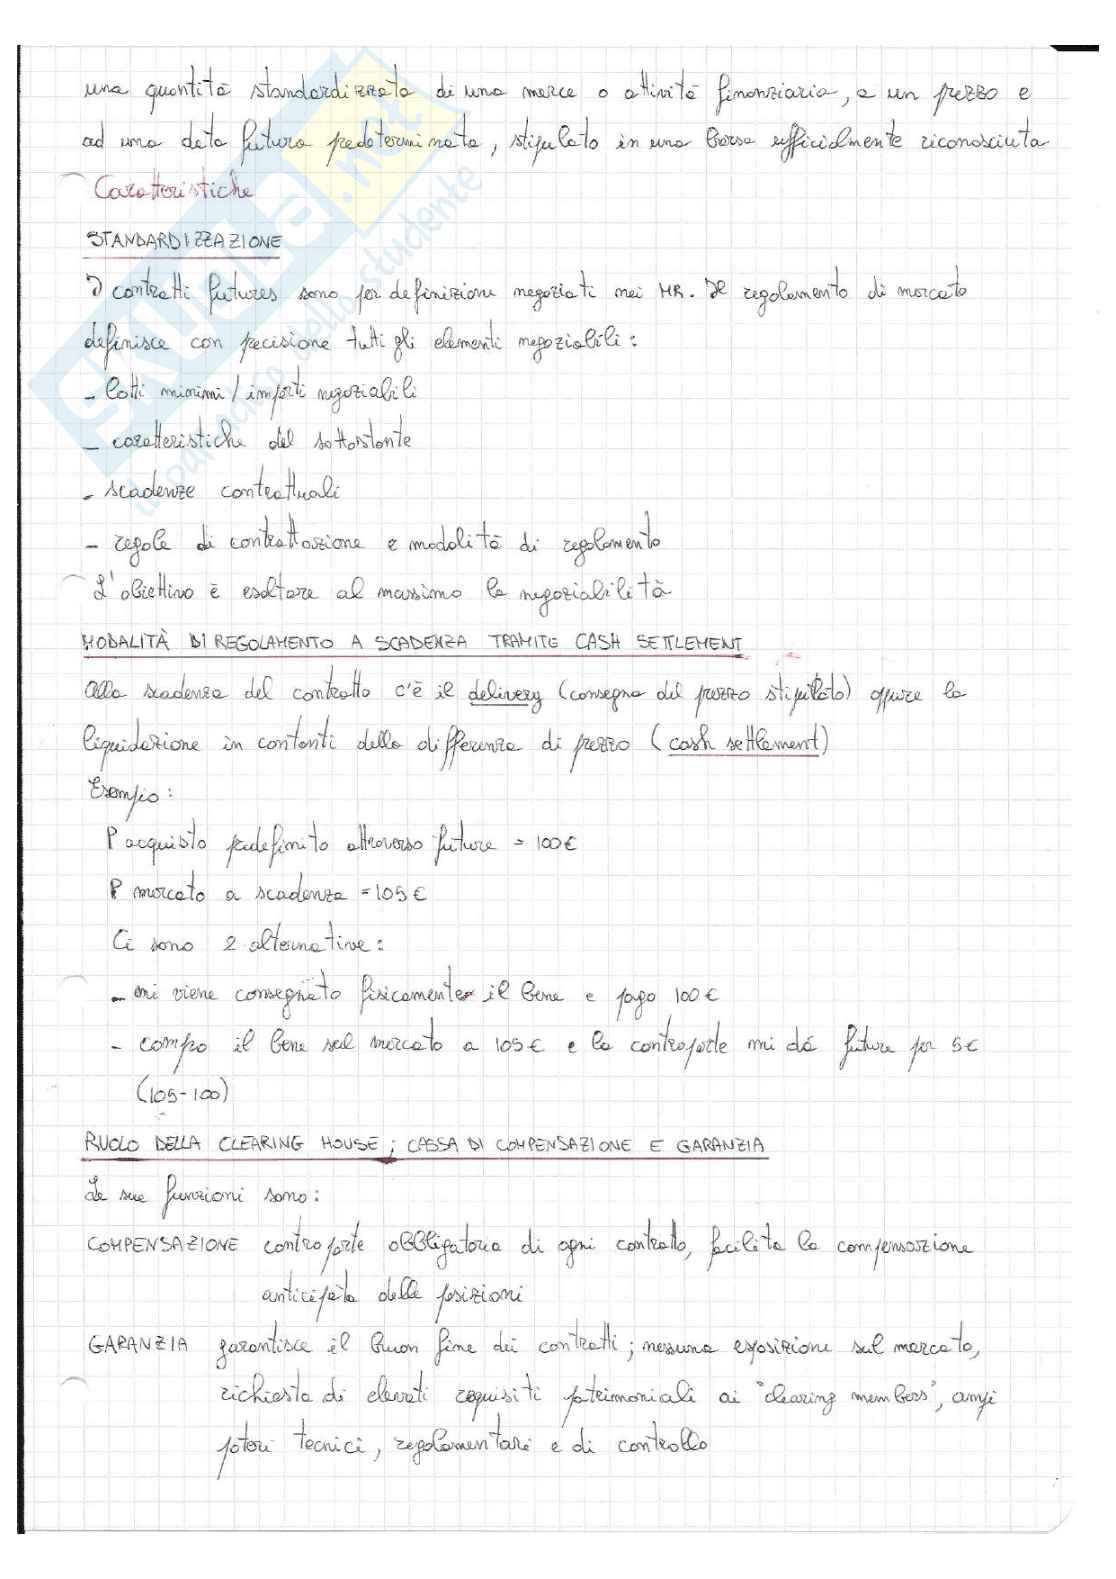 una quantità standardizzata di una merce o attività finanziaria, a un prezzo e
ad una data futura predeterminata, stipulato in una borsa ufficialmente riconosciuta
Caratteristiche
STANDARDIZZAZIONE
I contratti futures sono per definizione negoziati nei MR. Il regolamento di mercato
definisce con precisione tutti gli elementi negoziabili:
- lotti minimi / importi negoziabili
- caratteristiche del sottostante
- scadenze contrattuali
- regole di contrattazione e modalità di regolamento
L'obiettivo è esaltare al massimo la negoziabilità
MODALITÀ DI REGOLAMENTO A SCADENZA TRAMITE CASH SETTLEMENT
Alla scadenza del contratto c'è il delivery (consegna del prezzo stipulato) oppure la
liquidazione in contanti della differenza di prezzo (cash settlement)
Esempio:
P acquisto predefinito attraverso future = 100€
P mercato a scadenza = 105€
Ci sono 2 alternative:
- mi viene consegnato fisicamente il bene e pago 100€
- compro il bene sul mercato a 105€ e la controparte mi dà future per 5€
(105-100)
RUOLO DELLA CLEARING HOUSE; CASSA DI COMPENSAZIONE E GARANZIA
Le sue funzioni sono:
COMPENSAZIONE controparte obbligatoria di ogni contratto, facilita la compensazione
anticipata delle posizioni
GARANZIA garantisce il buon fine dei contratti; nessuna esposizione sul mercato,
richiesta di elevati requisiti patrimoniali ai "clearing members", ampi
poteri tecnici, regolamentari e di controllo
SKUola.net
il paradiso dello studente